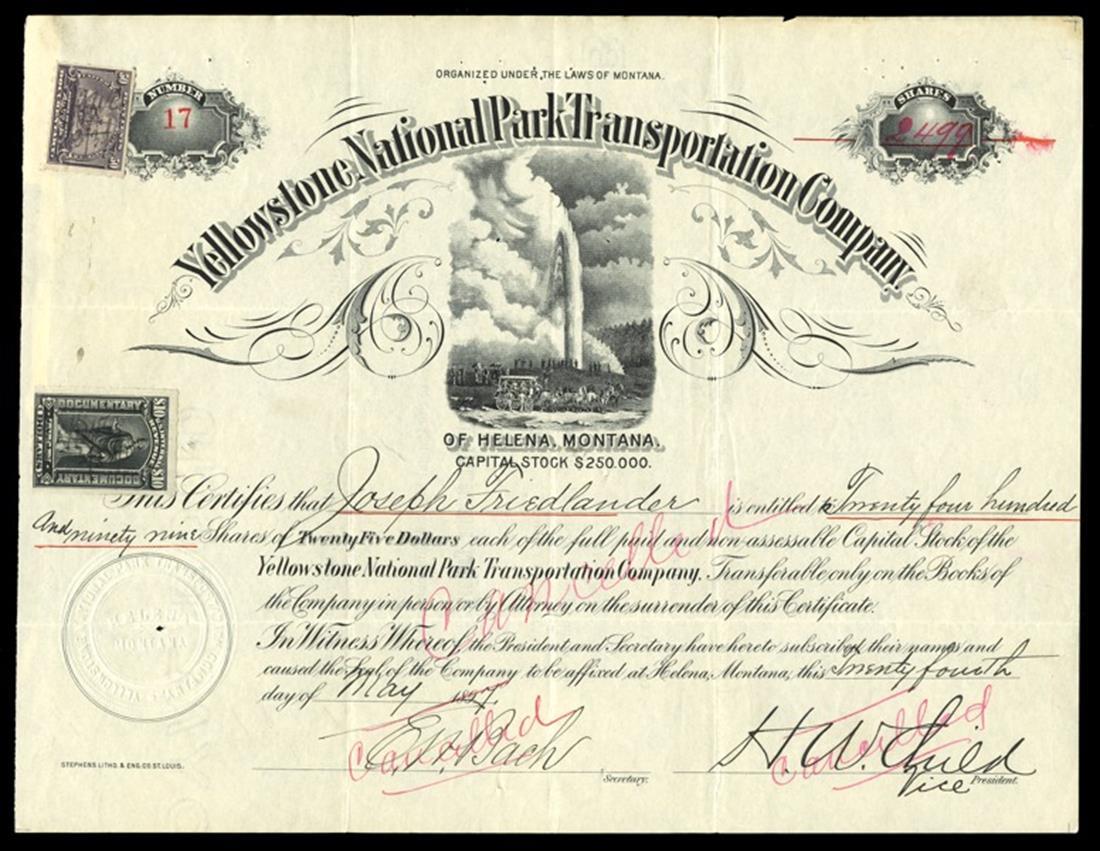 ORGANIZED UNDER THE LAWS OF MONTANA.
NUMBER
17
SHARES
2499
Yellowstone National Park Transportation Company,
OF HELENA, MONTANA.
CAPITAL STOCK $250.000.
DOCUMENTARY
$10
$10
DOCUMENTARY
This Certifies that Joseph Friedlander is entitled to Twenty four hundred
And ninety nine Shares of Twenty Five Dollars each of the full paid and non-assessable Capital Stock of the
Yellowstone National Park Transportation Company. Transferable only on the Books of
the Company in person or by Attorney on the surrender of this Certificate.
In Witness Whereof, the President and Secretary have hereto subscribed their names and
caused the Seal of the Company to be affixed at Helena, Montana, this Twenty fourth
day of May
Cancelled
Cancelled
Cancelled
E. W. Bach
Secretary.
H. W. Child
Vice President.
STEPHENS LITHO. & ENG. CO. ST. LOUIS.